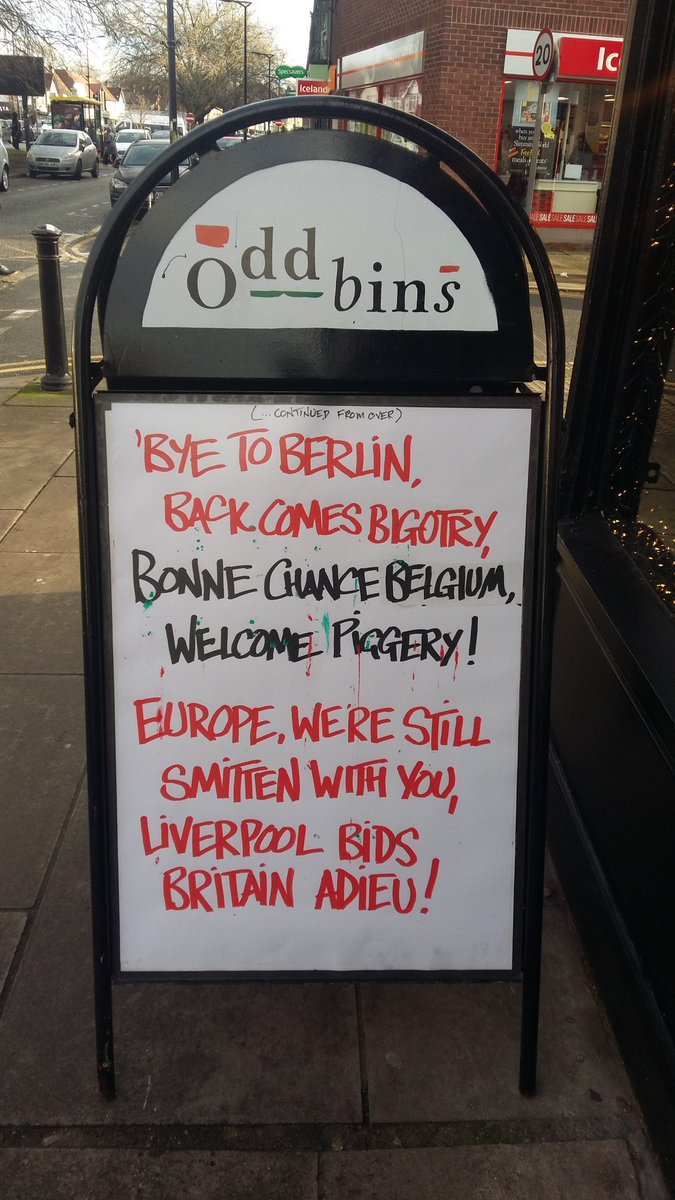 Specsavers
Iceland
20
Ic
SALE SALE SALE SALE
Oddbins
(... CONTINUED FROM OVER)
'BYE TO BERLIN,
BACK COMES BIGOTRY,
BONNE CHANCE BELGIUM,
WELCOME PIGGERY!
EUROPE, WE'RE STILL
SMITTEN WITH YOU,
LIVERPOOL BIDS
BRITAIN ADIEU!